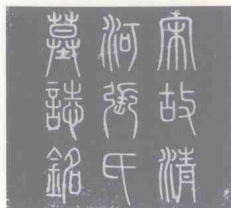 宋故清
河張氏
墓誌銘